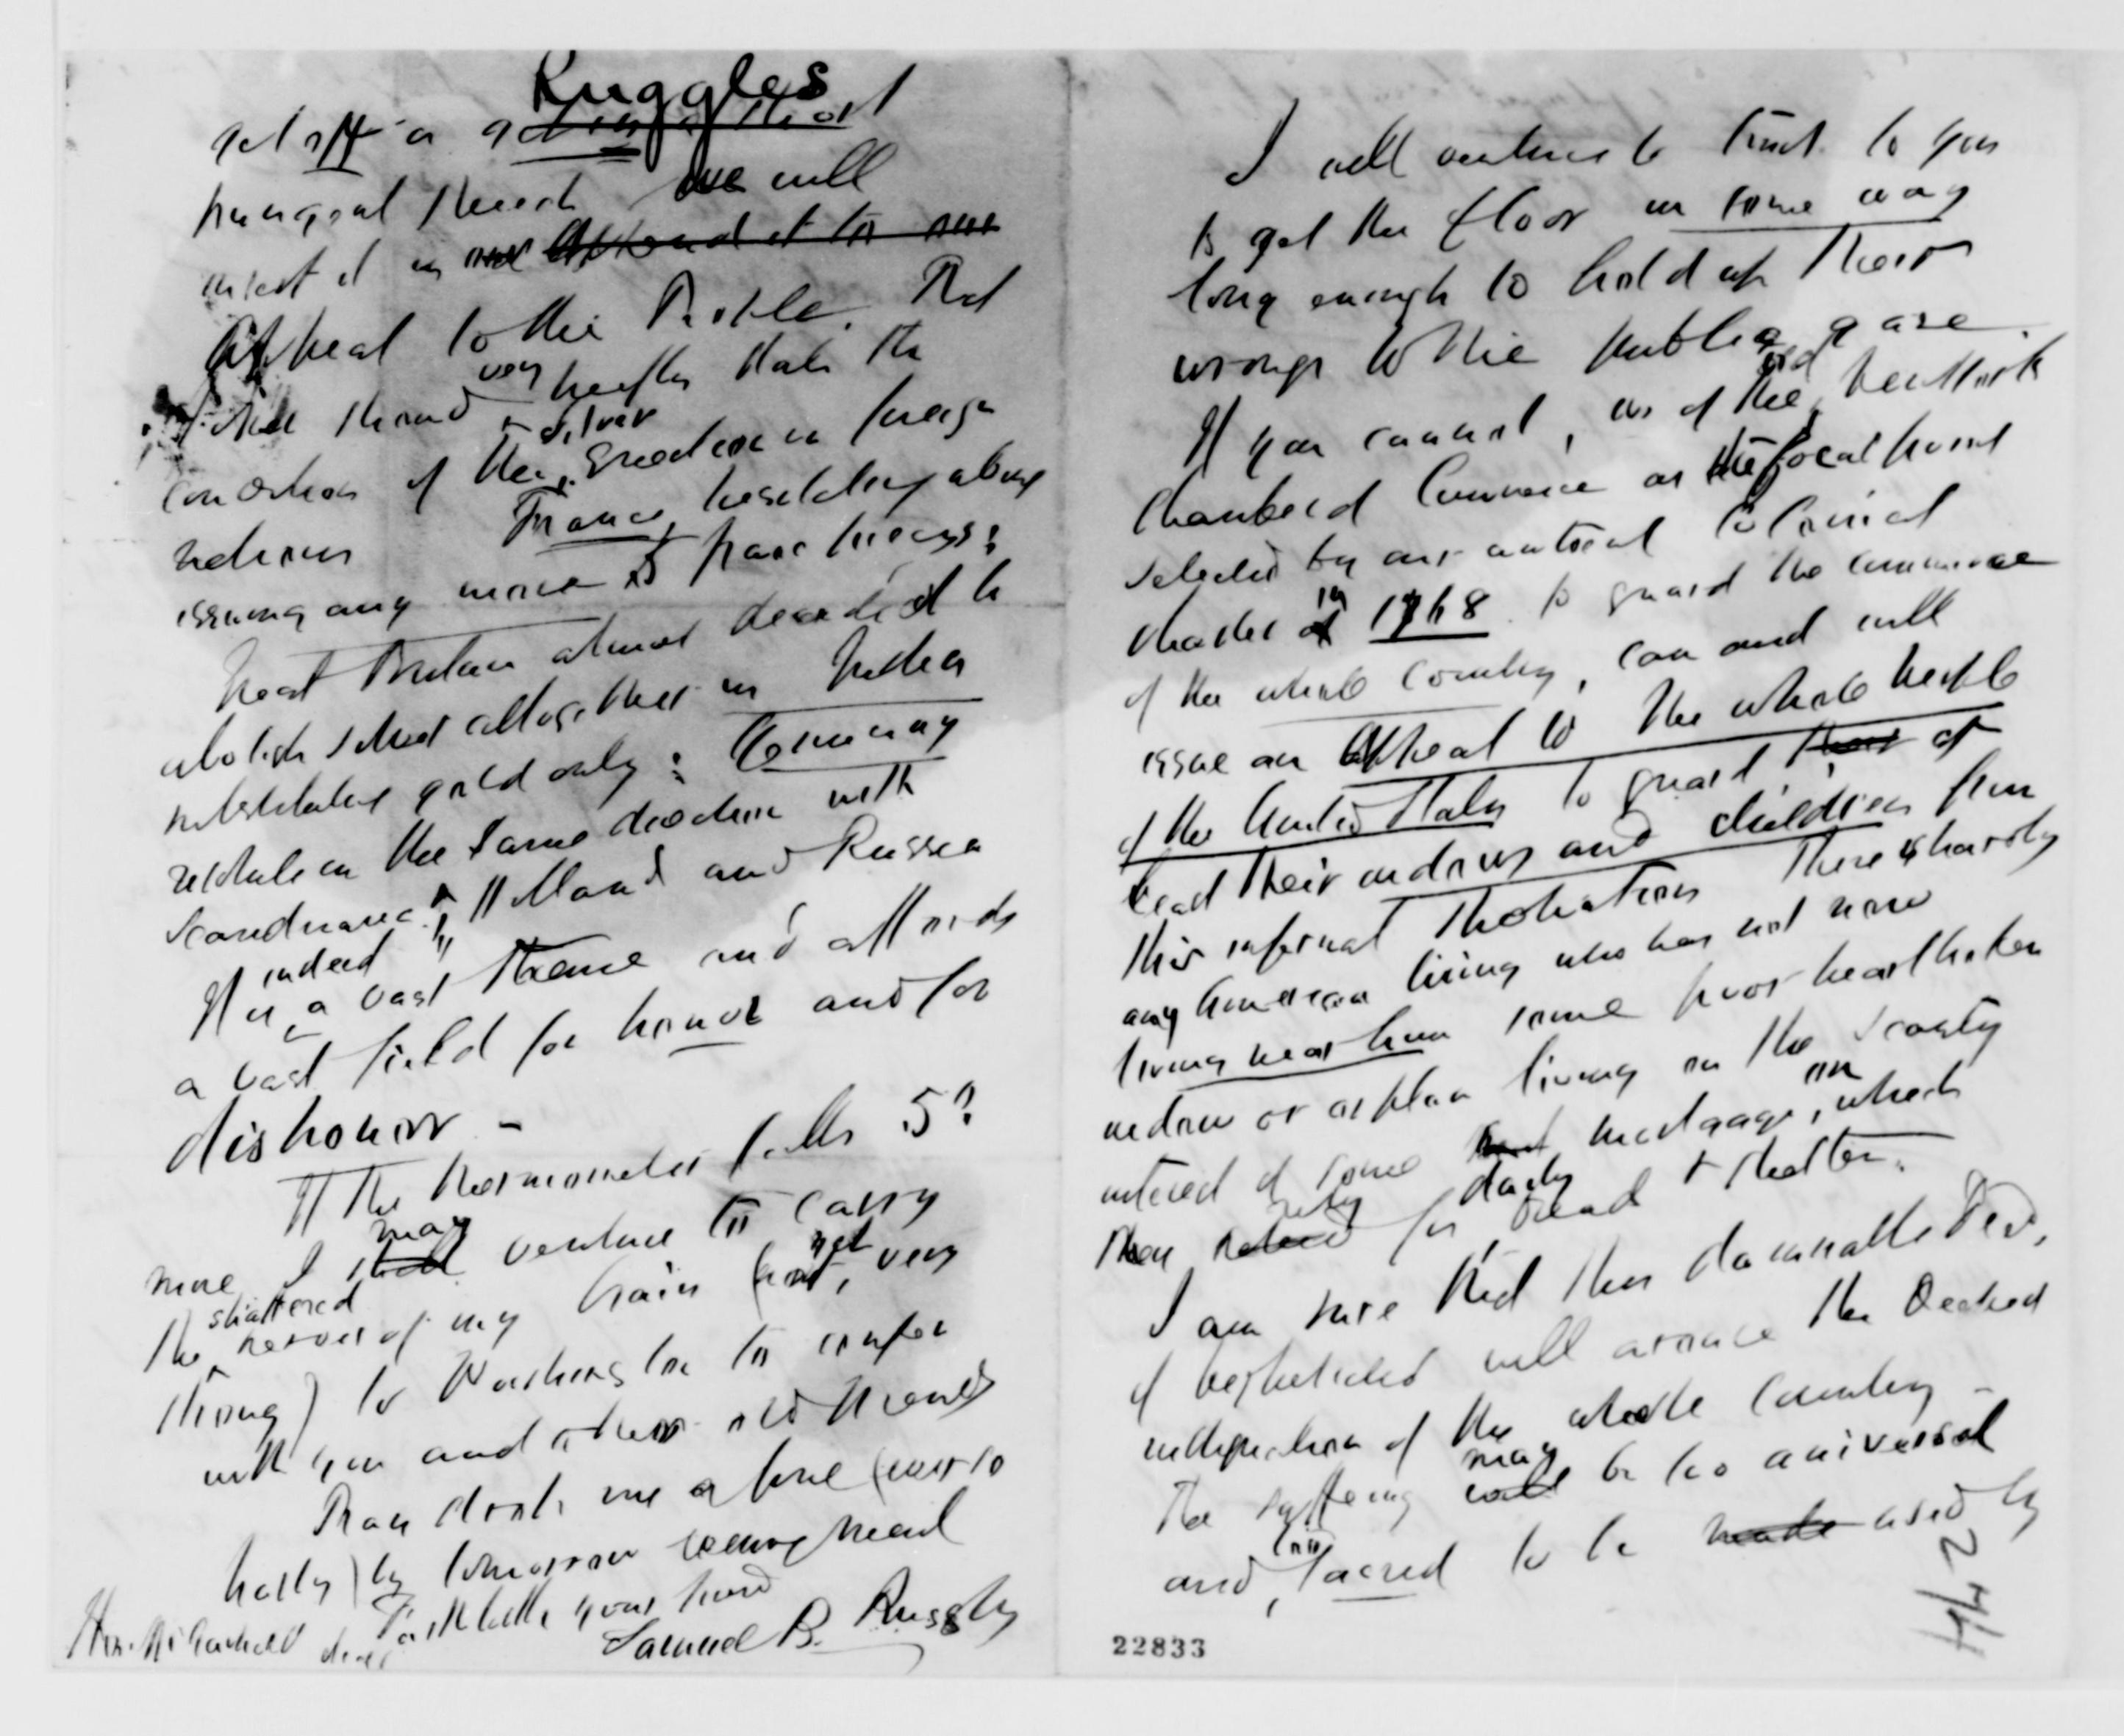 Ruggles
get off a
we will
insert it in
Appeal to the People. That
should very briefly state the
condition of the silver question in foreign
nations France, hesitating about
issuing any more 5 franc pieces;
Great Britain almost decided to
abolish silver altogether in India
substituting gold only; Germany
resolute in the same direction with
Scandinavia, Holland and Russia
It is indeed a vast theme and affords
a vast field for honor and for
dishonor -
If the thermometer falls 5°
more I may venture to carry
the shattered nerves of my brain (not yet, very
strong) to Washington to confer
with you and other old friends
Pray drop me a line (ever so
hasty) by tomorrow evening mail
Faithfully your friend
Samuel B. Ruggles
I will venture to trust to you
to get the floor in some way
long enough to hold up their
wrongs to the public gaze.
If you cannot, us of the old
Chamber of Commerce as the focal point
selected by our Colonial
charter in 1768 to guard the commerce
of the whole country, can and will
issue an Appeal to the whole people
of the United States to guard at
least their widows and children from
this infernal spoliation There is hardly
any American living who has not now
living near him some poor heartbroken
widow or orphan living on the scanty
interest of some mortgage, on which
they rely for daily bread & shelter.
I am sure that this damnable
will arouse the
indignation of the whole Country -
The suffering may be too universal
and too sacred to be used by
22833